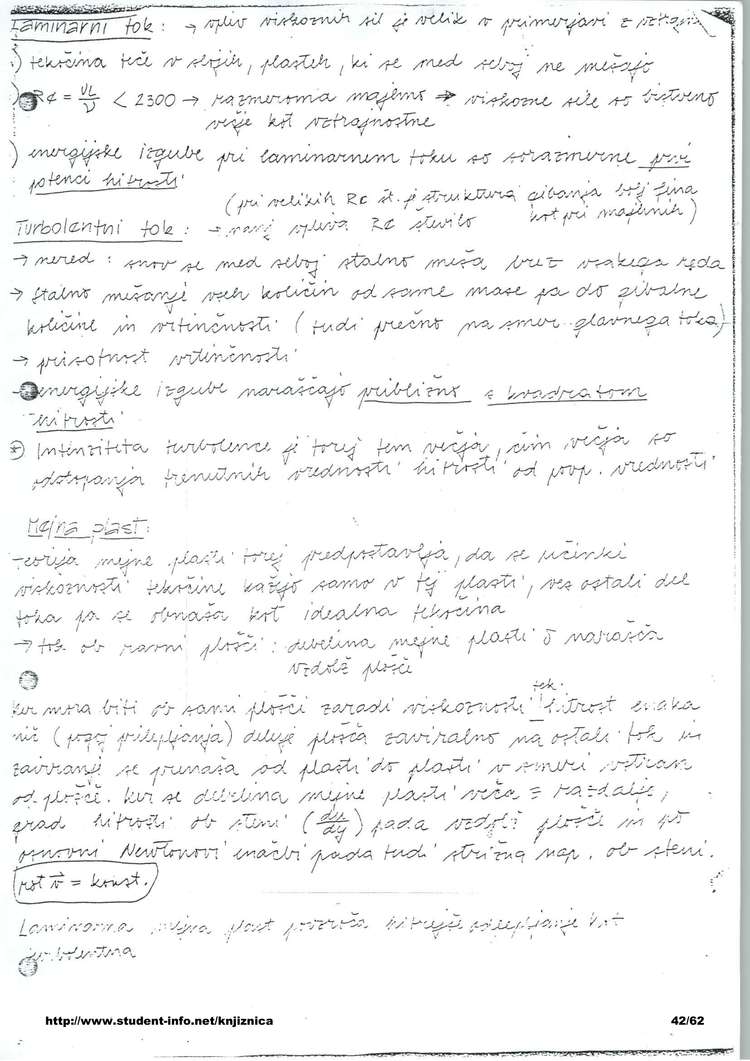 Laminarni tok: → vpliv viskoznih sil je velik v primerjavi z vztrajn
) tekočina teče v slojih, plasteh, ki se med seboj ne mešajo
) Re = vL/ν < 2300 → razmeroma majhno → viskozne sile so bistveno
večje kot vztrajnostne
) energijske izgube pri laminarnem toku so sorazmerne prvi
potenci hitrosti
(pri velikih Re št. je struktura gibanja bolj fina
kot pri majhnih)
Turbolentni tok: → nanj vpliva Re število
→ nered: snov se med seboj stalno meša brez vsakega reda
→ stalno mešanje vseh količin od same mase pa do gibalne
količine in vrtinčnosti (tudi prečno na smer glavnega toka)
→ prisotnost vrtinčnosti
- energijske izgube naraščajo približno s kvadratom
hitrosti
* Intenziteta turbolence je torej tem večja, čim večja so
odstopanja trenutnih vrednosti hitrosti od povp. vrednosti
Mejna plast:
Teorija mejne plasti torej predpostavlja, da se učinki
viskoznosti tekočine kažejo samo v tej plasti, ves ostali del
toka pa se obnaša kot idealna tekočina
→ tok ob ravni plošči: debelina mejne plasti δ narašča
vzdolž plošče
Ker mora biti ob sami plošči zaradi viskoznosti tek. hitrost enaka
nič (pogoj prilepljanja) deluje plošča zaviralno na ostali tok in
zaviranje se prenaša od plasti do plasti v smeri vstran
od plošče. Ker se debelina mejne plasti veča z razdaljo,
grad hitrosti ob steni (du/dy) pada vzdolž plošče in po
osnovni Newtonovi enačbi pada tudi strižna nap. ob steni.
rot v⃗ = konst.
Laminarna mejna plast povzroča hitrejše odlepljanje kot
turbolentna
http://www.student-info.net/knjiznica
42/62